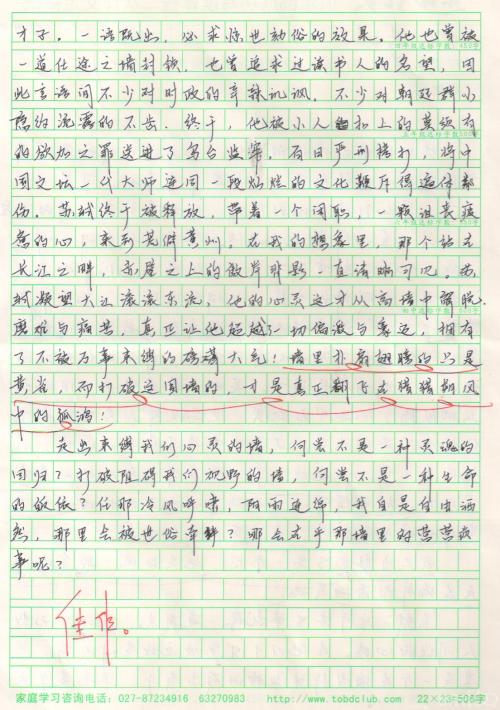 才子。一语既出，必求惊世动俗的效果。他也曾被
四年级达标字数：450字
一道仕途之墙封锁，也曾追求过读书人的名望，因
此言语间不少对时政的辛辣讥讽。不少对朝廷群小
隐约流露的不齿。终于，他被小人扣上的莫须有
五年级达标字数500字
的欲加之罪送进了乌台监牢，百日严刑拷打，将中
国文坛一代大师连同一段灿烂的文化鞭斥得遍体都
伤。苏轼终于被释放，带着一个闲职，一颗沮丧疲
惫的心，来到荒僻黄州，在我的想象里，那个站在
长江之畔，赤壁之上的傲岸背影一直清晰可见。苏
轼凝望大江滚滚东流，他的心灵这才从高墙中解脱，
磨难与痛苦，真正让他超越了一切偏激与豪迈，拥有
了不被万事束缚的磅礴大气！墙里扑扇翅膀的只是
黄雀，而打破这围墙的，才是真正翻飞在猎猎朔风
中的孤鸿！
走出束缚我们心灵的墙，何尝不是一种灵魂的
回归？打破阻碍我们视野的墙，何尝不是一种生命
的皈依？任那冷风呼啸，阴雨连绵，我自是自由洒
然，那里会被世俗牵绊？哪会在乎那墙里对营营疲
事呢？
佳作。
家庭学习咨询电话：027-87234916 63270983 http://www.tobdclub.com 22×23=506字